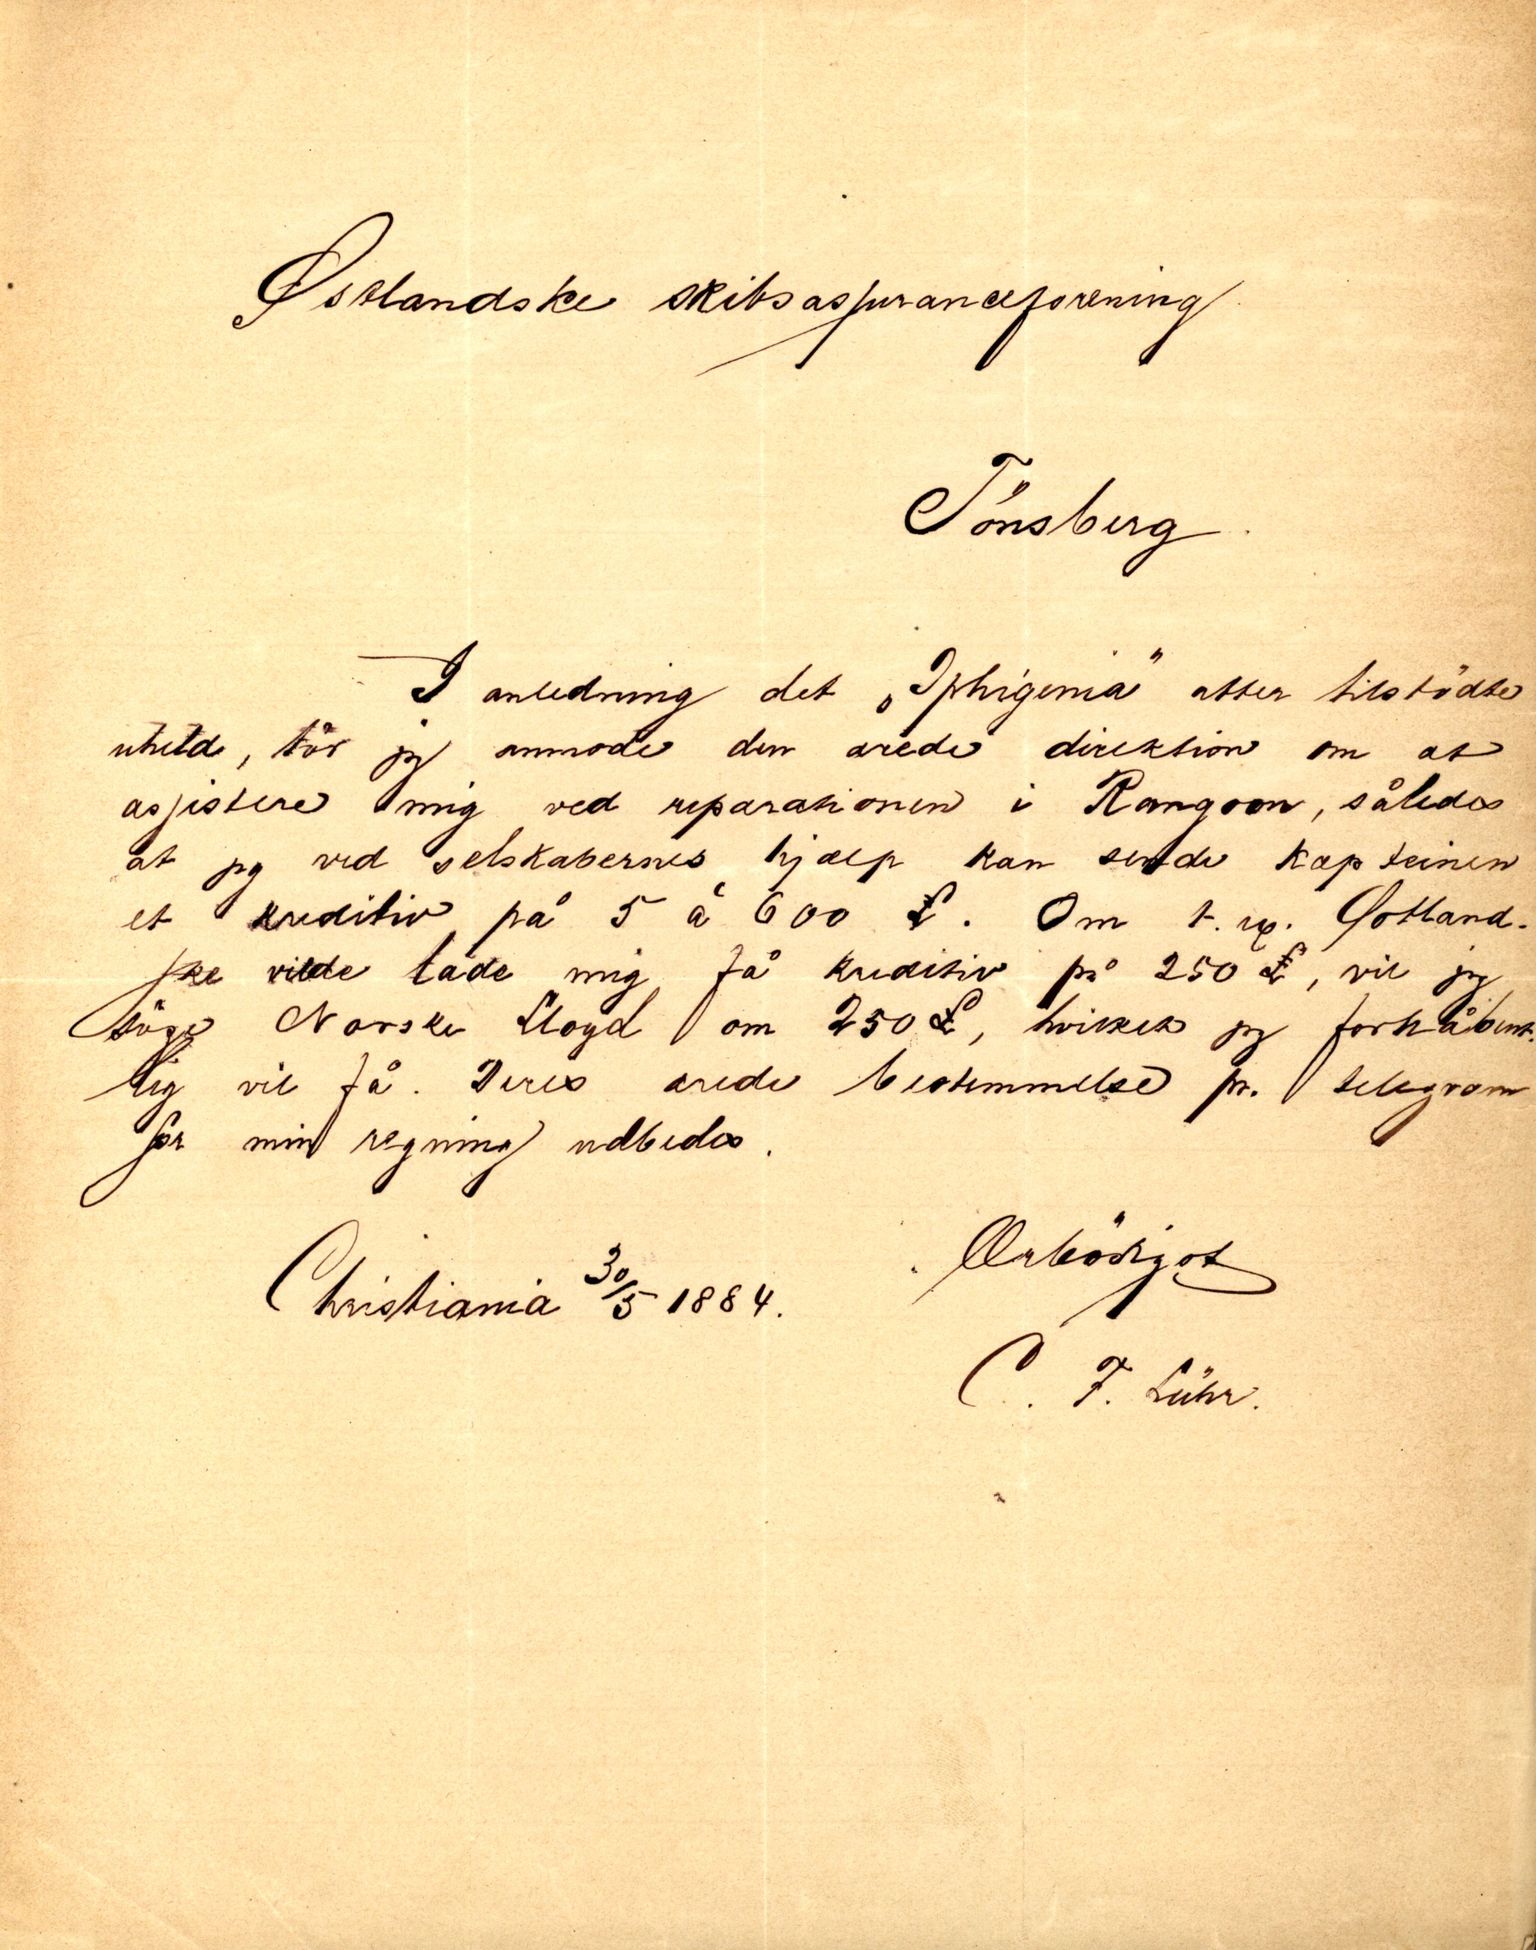 Østlandske skibsassuranceforening
Tönsberg.
I anledning det „Iphigenia" atter tilstödte
uheld, tör jeg anmode den ærede direktion om at
assistere mig ved reparationen i Rangoon, således
at jeg ved selskabernes hjælp kan sende kapteinen
et kreditiv på 5 à 600 £. Om f. ex. Østland-
ske vilde lade mig få kreditiv på 250 £, vil jeg
söge Norske Lloyd om 250 £, hvilket jeg forhåbent-
lig vil få. Deres ærede bestemmelse pr. telegram
for min regning udbedes.
Ærbödigst
Christiania 30/5 1884.
C. F. Lühr.